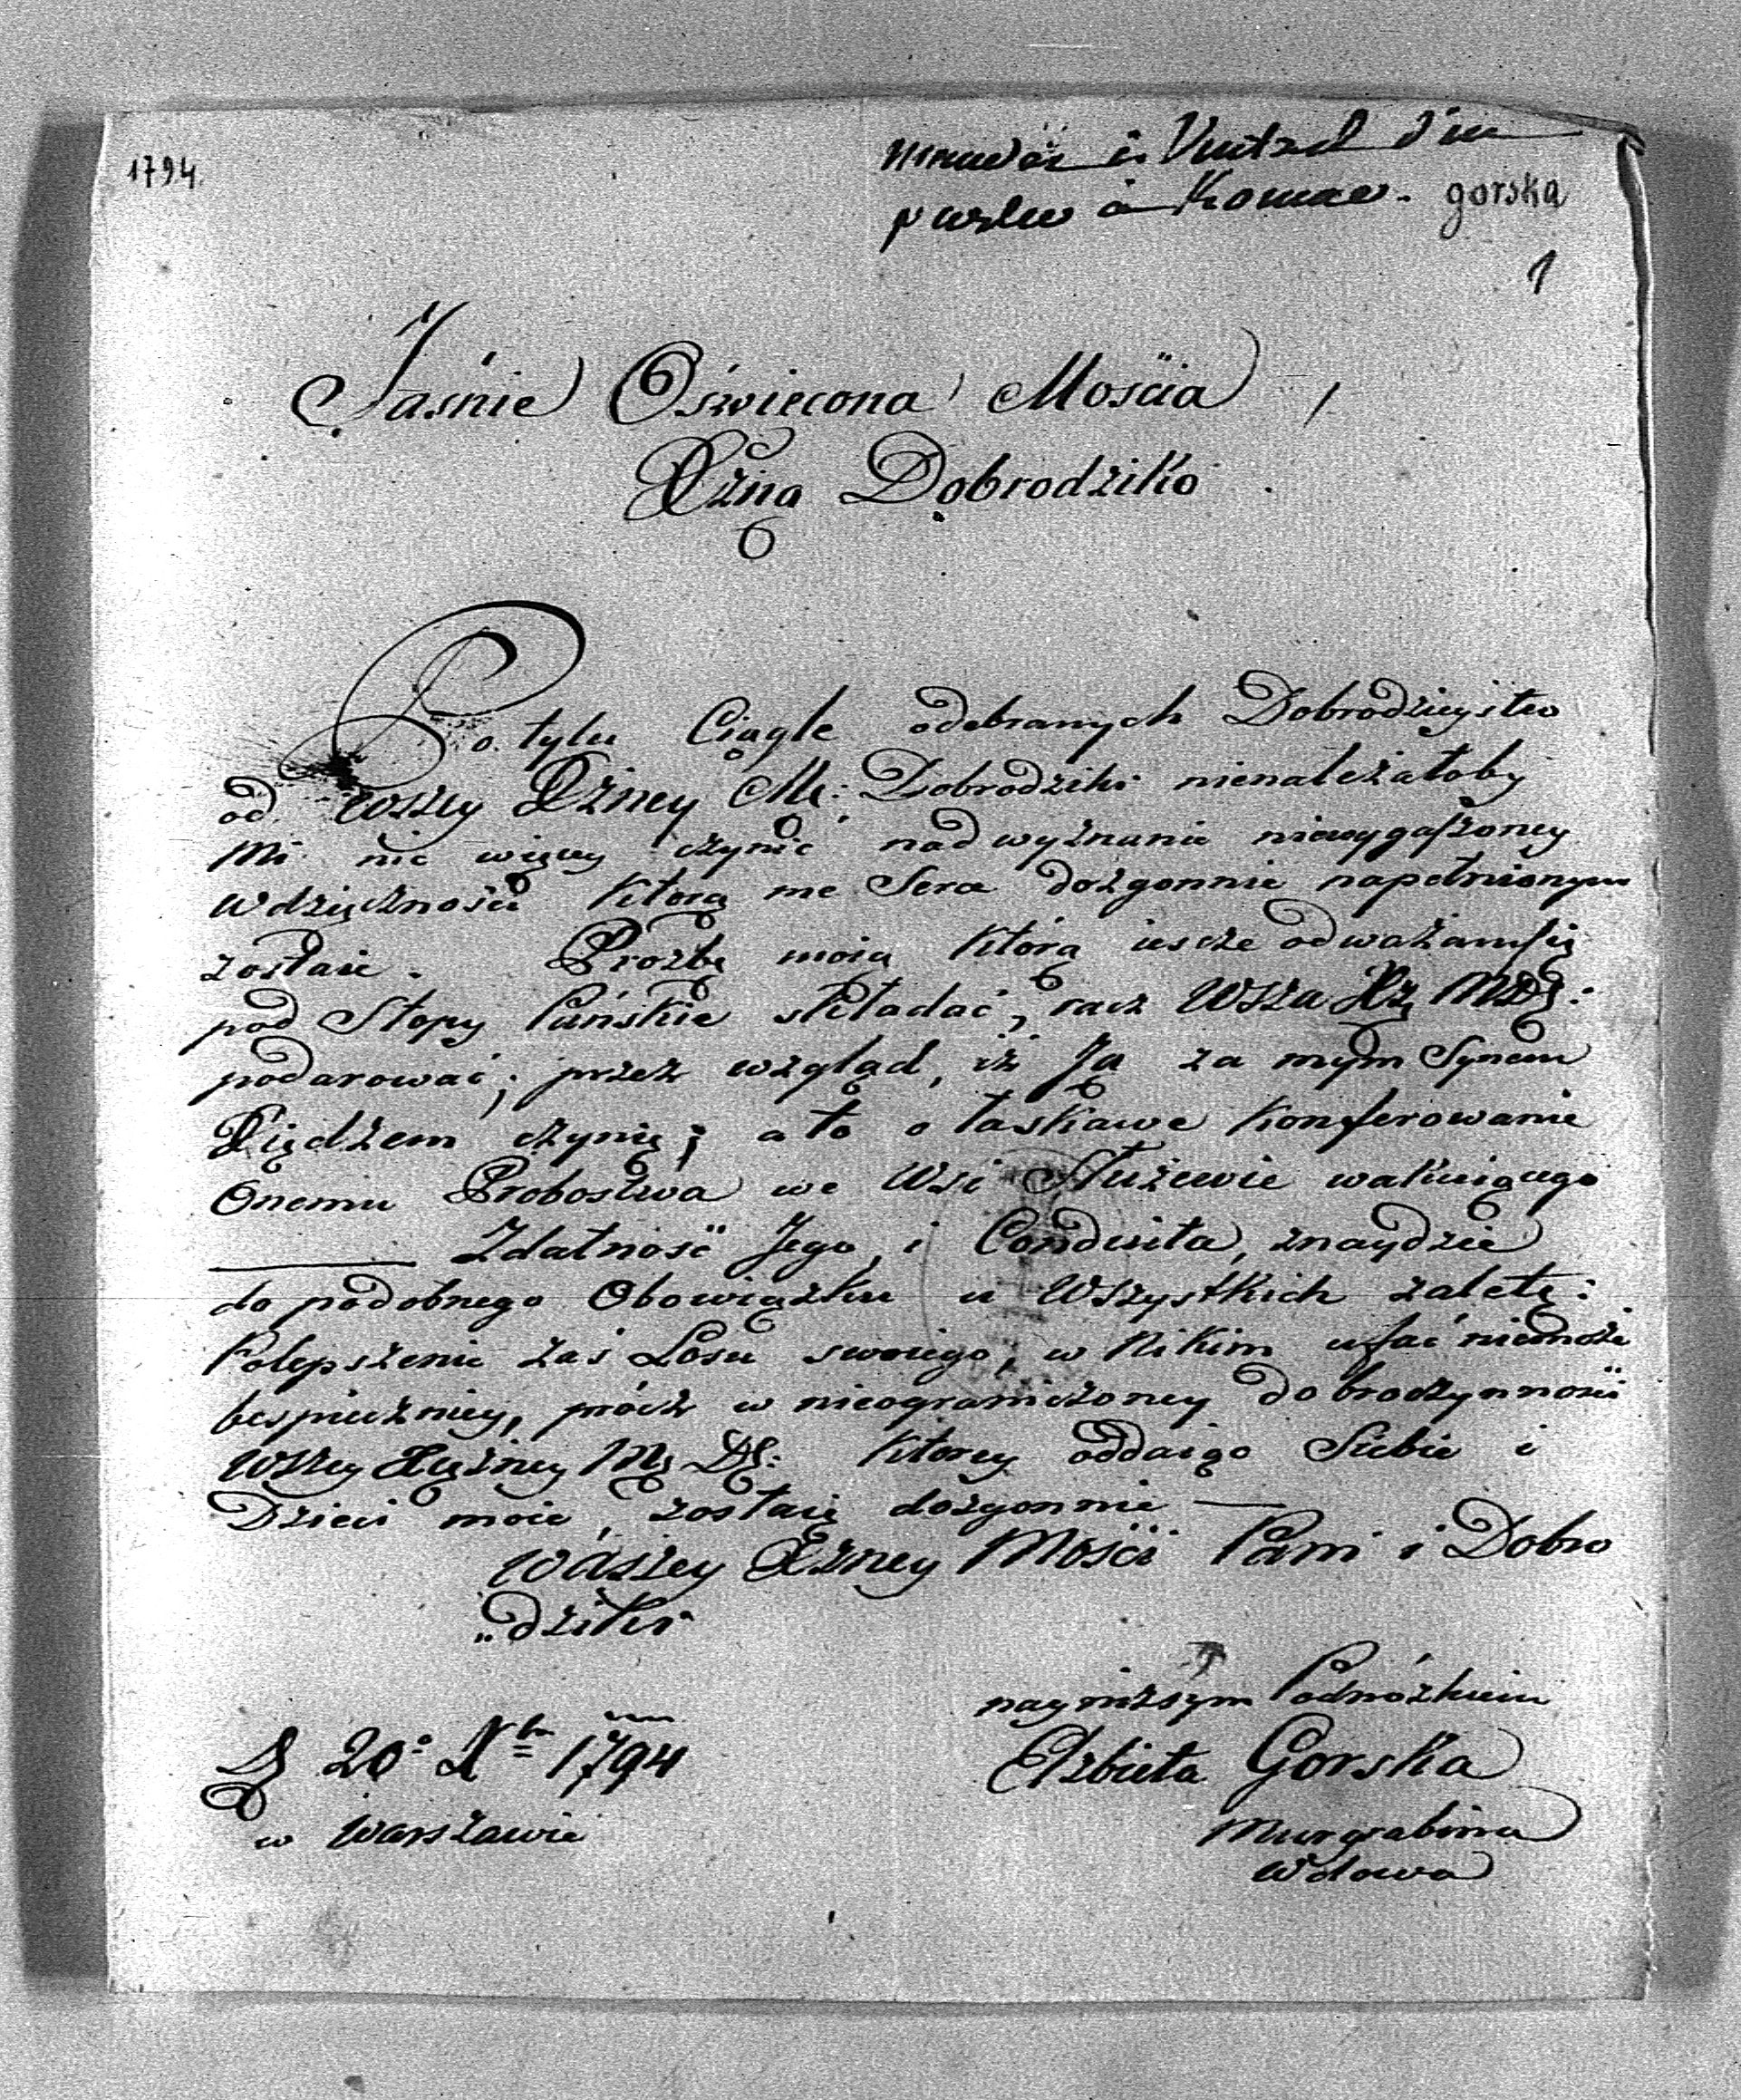 1794.
gorska
1
Jaśnie Oświecona Mościa
Xżna Dobrodziko
Po tylu Ciągle odebranych Dobrodzieystw
od Wszey Xżney Mę: Dobrodziki nienależałoby
Mi nic więcey czynić nad wyznanie niewygasżoney
Wdzięczności Którą me Serce dozgonnie napełnionym
zostaie. Prozbę moią Którą ieszcze odważamsię
pod Stopy Pańskie składać, racz Wsza Xżę MDź:
podarować; przez wzgląd, iż Ja za mym Synem
Xiędzem czynię; a to o łaskawe Konferowanie
Onemu Probostwa we Wsi Służewie wakuiącego
Zdatność Jego, i Conduita, znaydzie
do podobnego Obowiązku u Wszystkich zaletę:
Polepszenie zaś Losu swoiego, w Nikim ufać niemoże
bespieczniey, prócz w nieograniczoney dobroczynności
Wszey Xiężney Mę Dź: Ktorey oddaiąc Siebie i
Dzieci moie, zostaię dozgonnie —
Waszey Xżney Mości Pani i Dobro
„dziki
nayniższym Podnóżkiem
Elzbieta Gorska
Murgrabina
Wdowa
D 20° Xb 1794
w Warszawie